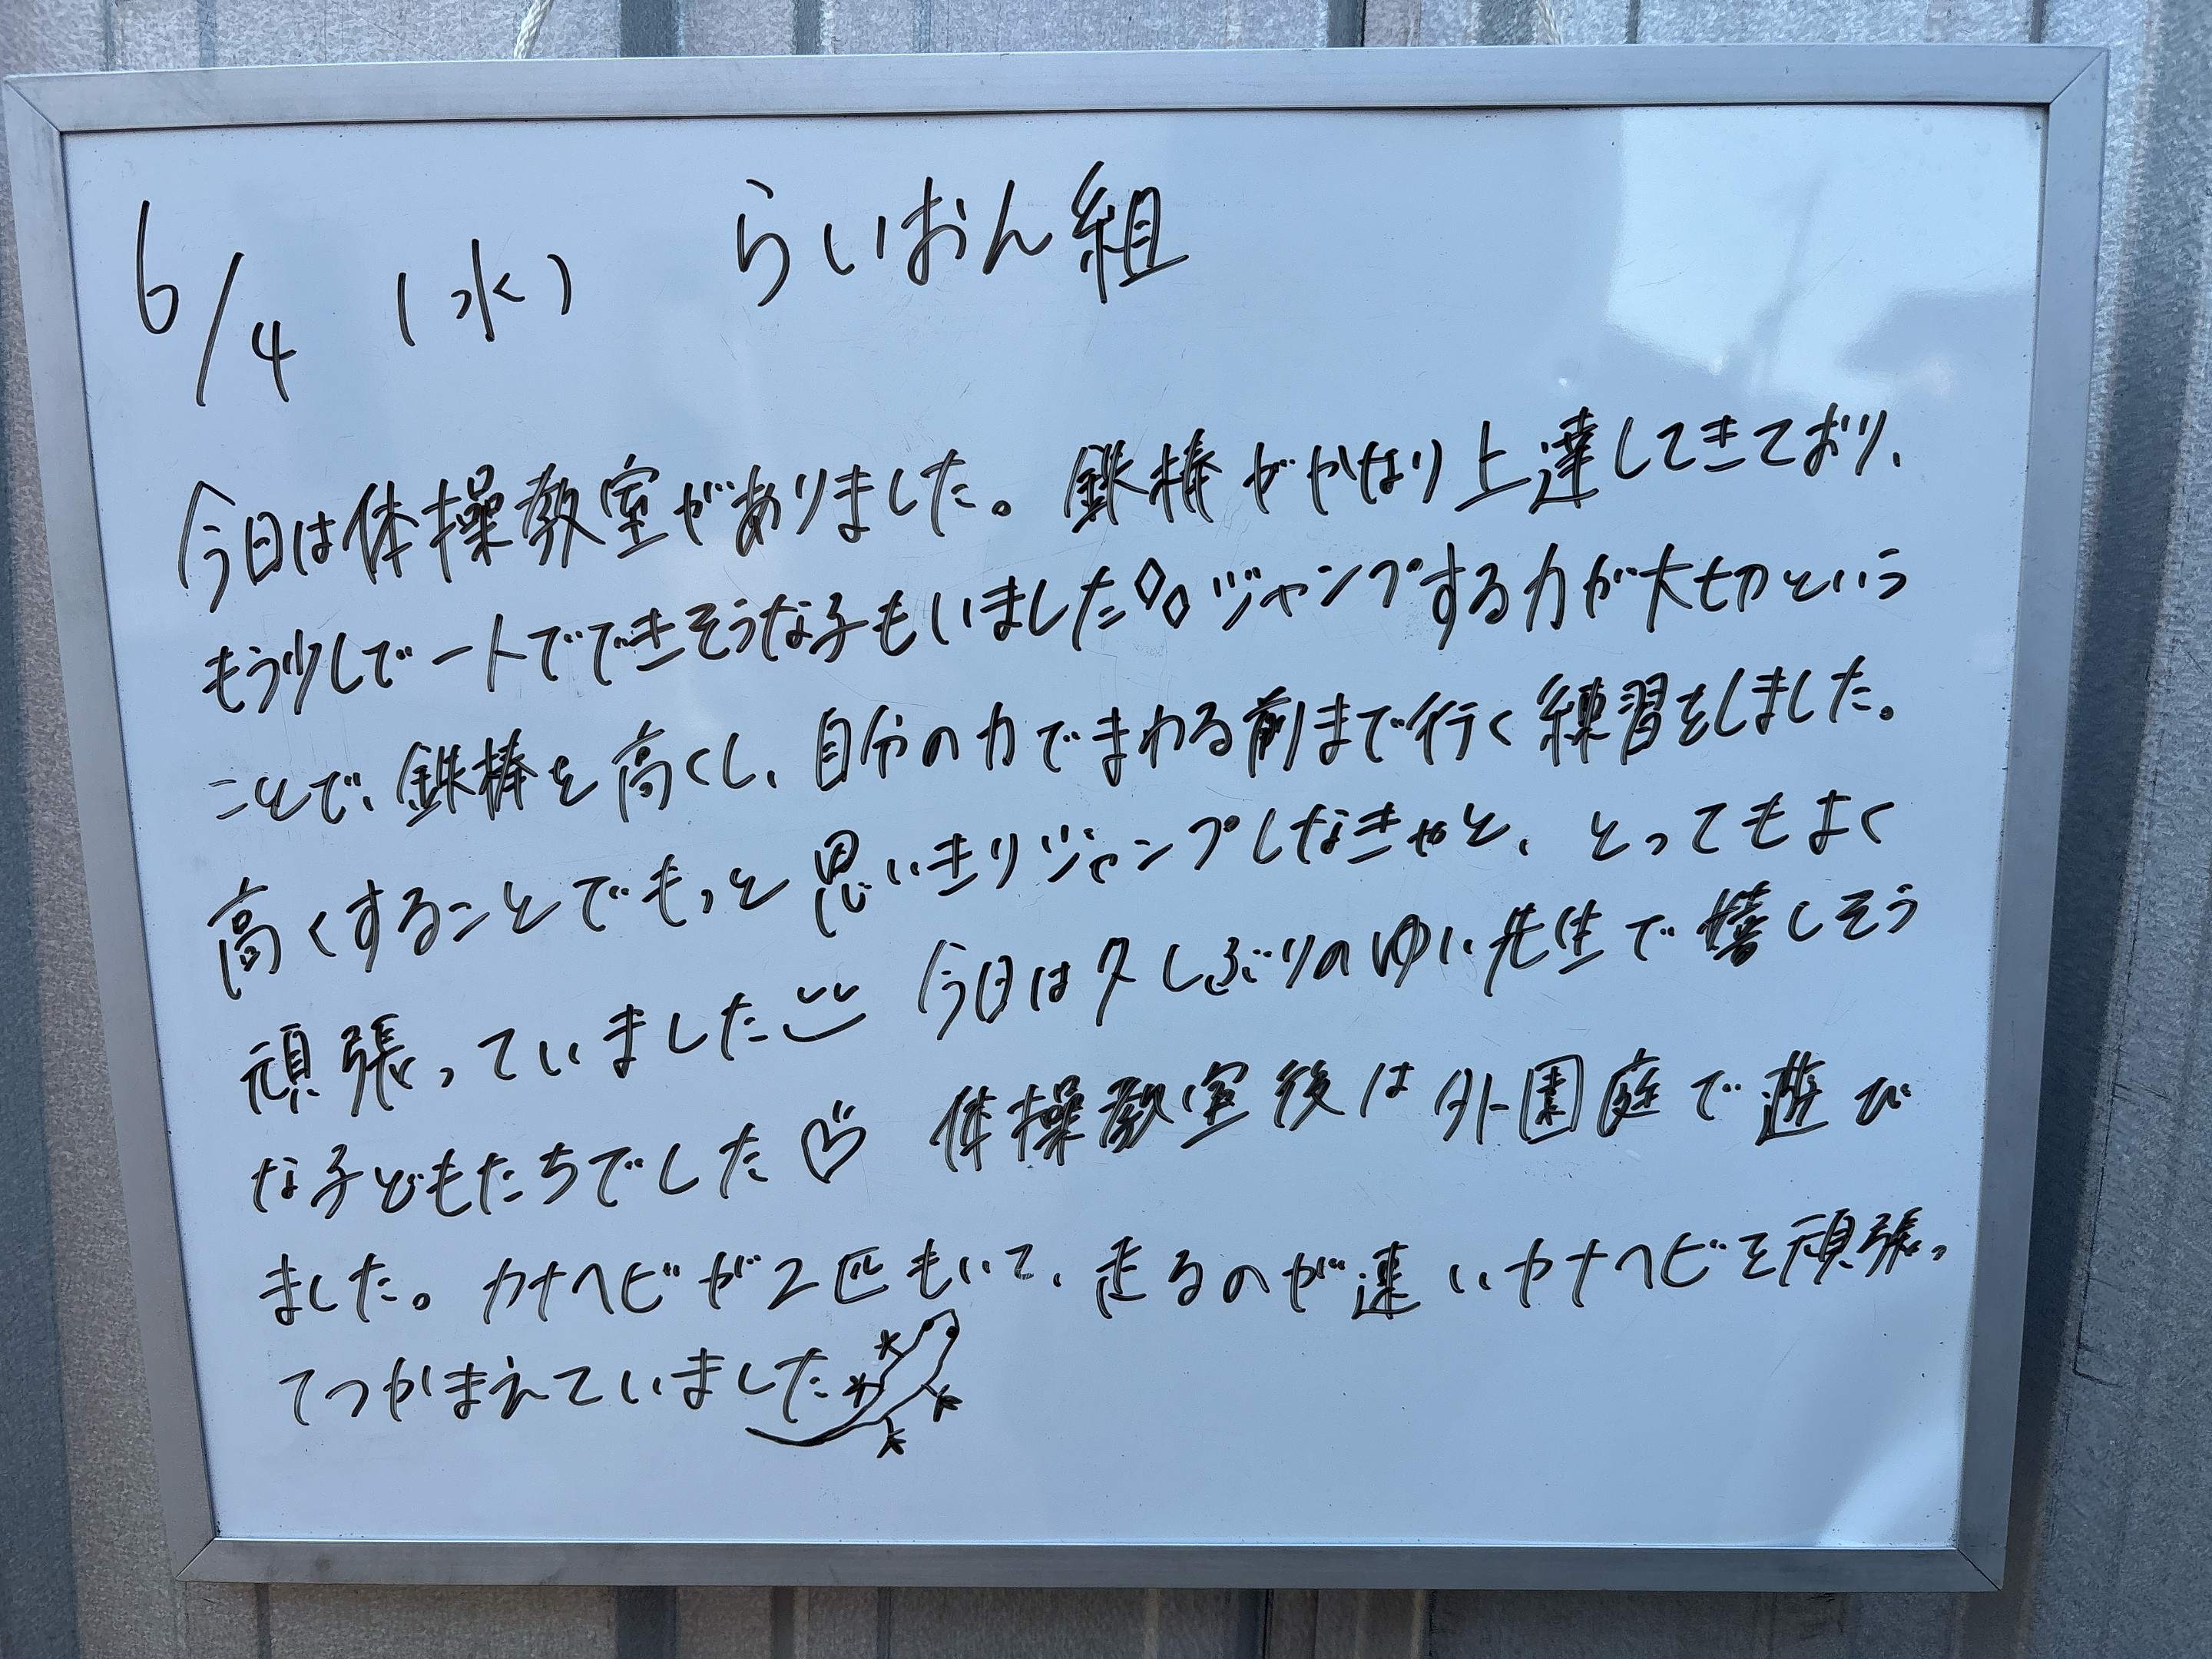 6/4 (水) らいおん組
今日は体操教室がありました。鉄棒がかなり上達してきており、
もう少しで一人でできそうな子もいました◊◊ジャンプする力が大切という
ことで、鉄棒を高くし、自分の力でまわる前まで行く練習をしました。
高くすることでもっと思いきりジャンプしなきゃと、とってもよく
頑張っていました 今日は久しぶりのゆい先生で嬉しそう
な子どもたちでした♡ 体操教室後は外園庭で遊び
ました。カナヘビが2匹もいて、走るのが速いカナヘビを頑張っ
てつかまえていました